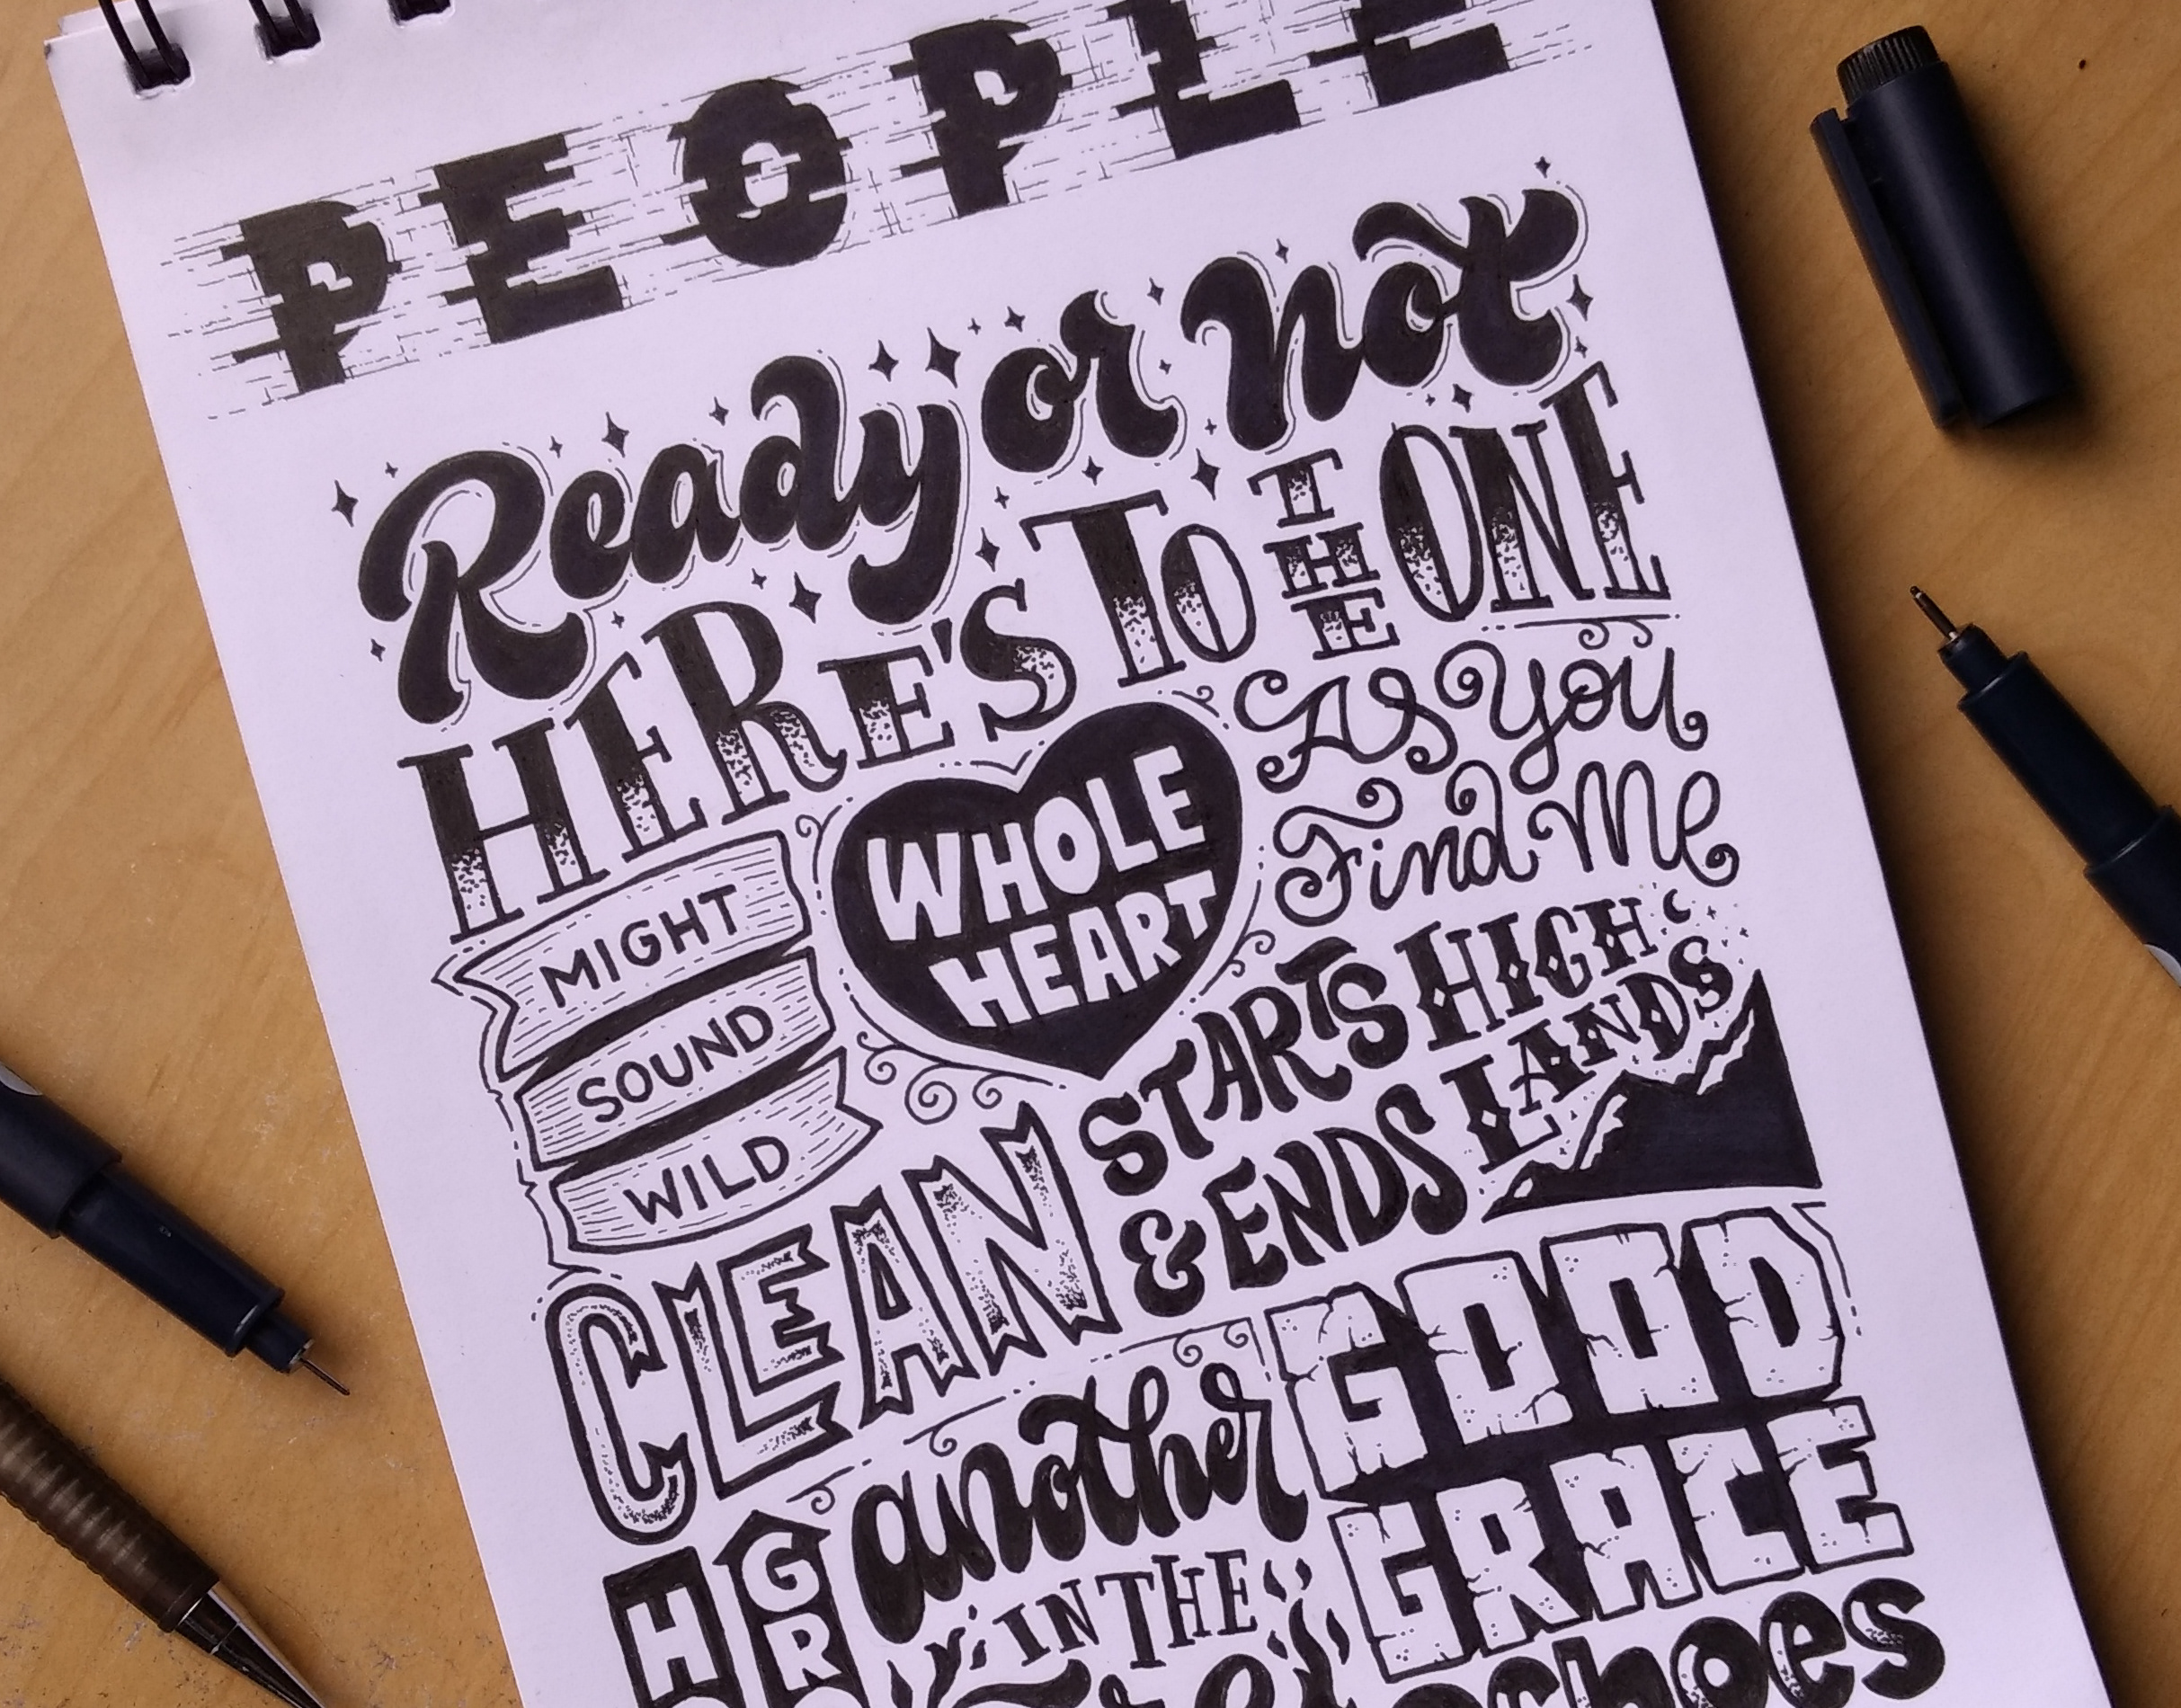 PEOPLE
Ready or Not
HERE'S TO THE ONE
MIGHT
SOUND
WILD
WHOLE
HEART
As You
Find Me
STARTS HIGH
& ENDS LANDS
CLEAN
another
IN THE
GOOD
GRACE